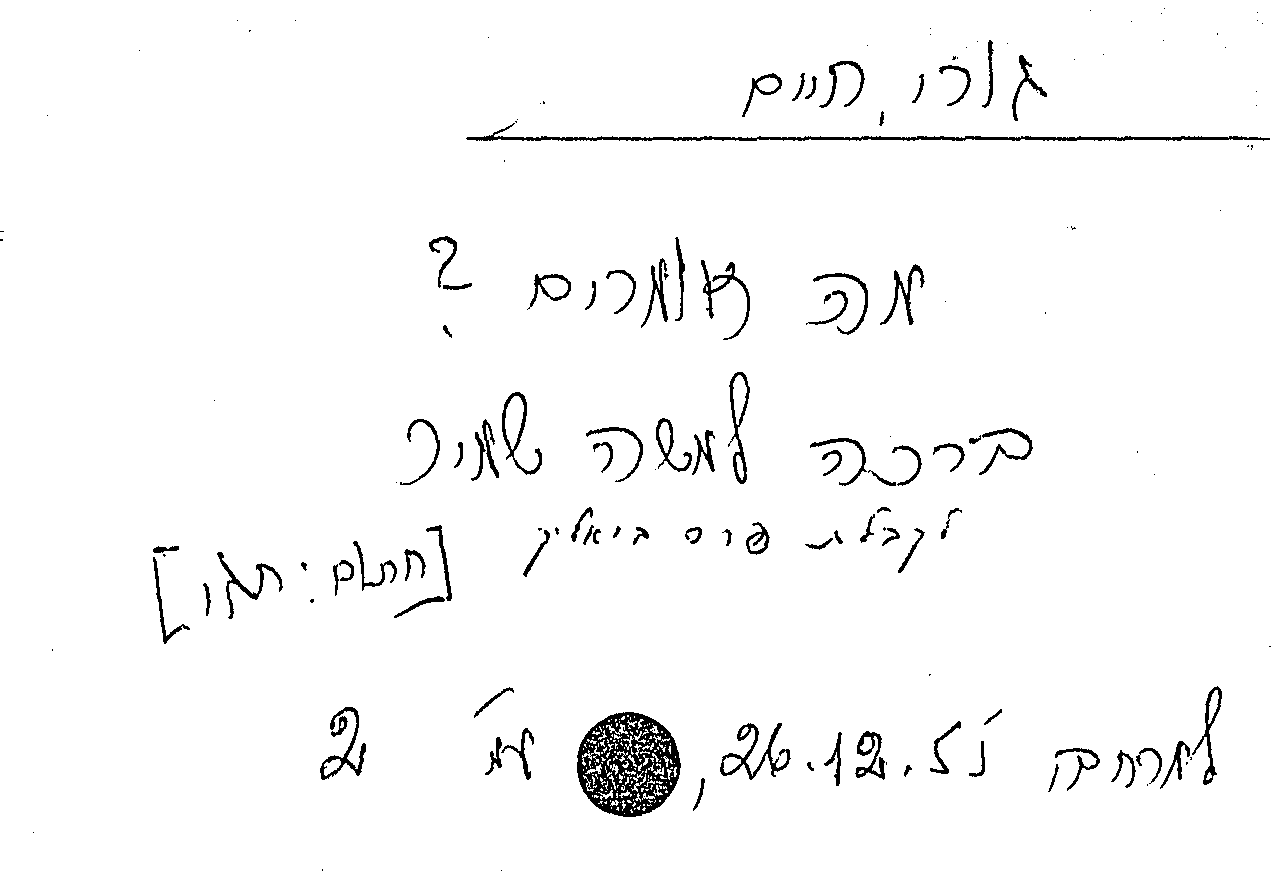 גורי, חיים
מה אומרים ?
ברכה למשה שמיר
לקבלת פרס ביאליק
[חתום: חגו]
למרחב, 26.12.55 עמ' 2